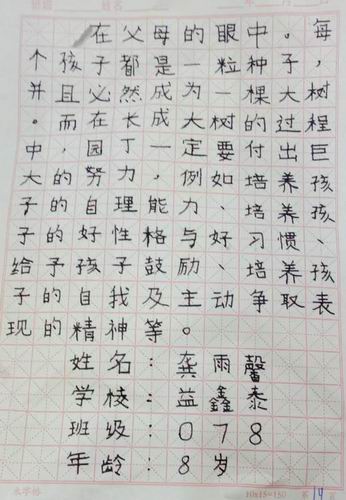 在父母的眼中。每
个孩子都是一粒种子，
并且必然成为一棵大树
。而在长成大树的过程
中，园丁一定要付出巨
大的努力，例如培养孩
子的自理能力、培养孩
子的好性格与好习惯、
给予孩子鼓励、培养孩
子的自我及主动争取表
现的精神等。
姓名：龚雨馨
学校：益鑫泰
班级：078
年龄：8岁
米字格 10x15=150 第19页